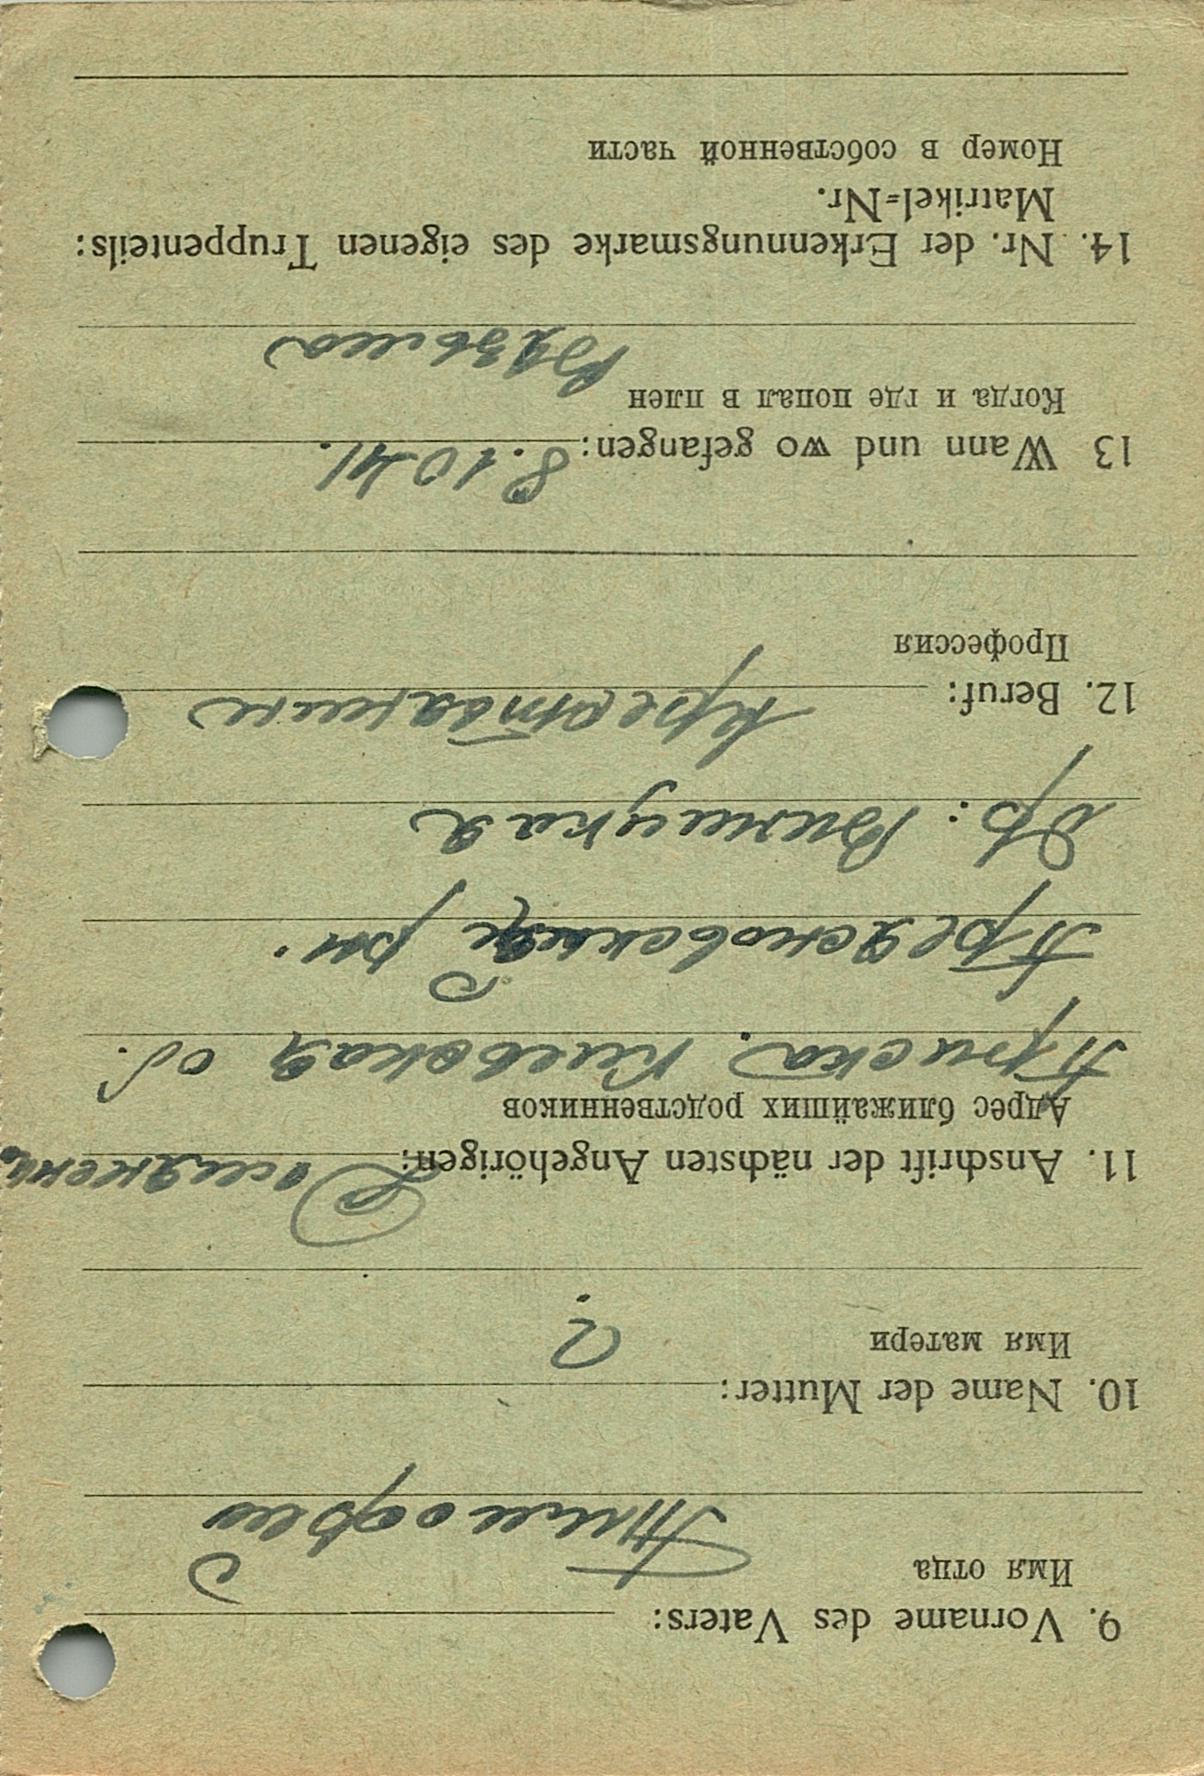 9. Vorname des Vaters:
Имя отца
Тимофей
10. Name der Mutter:
Имя матери
?
11. Anschrift der nächsten Angehörigen:
Адрес ближайших родственников
Приска. Киевская об.
рн.
др: Виницкая
12. Beruf: крестьянин
Профессия
13 Wann und wo gefangen: 8.10 41.
Когда и где попал в плен
Вязьма
14. Nr. der Erkennungsmarke des eigenen Truppenteils:
Matrikel=Nr.
Номер в собственной части